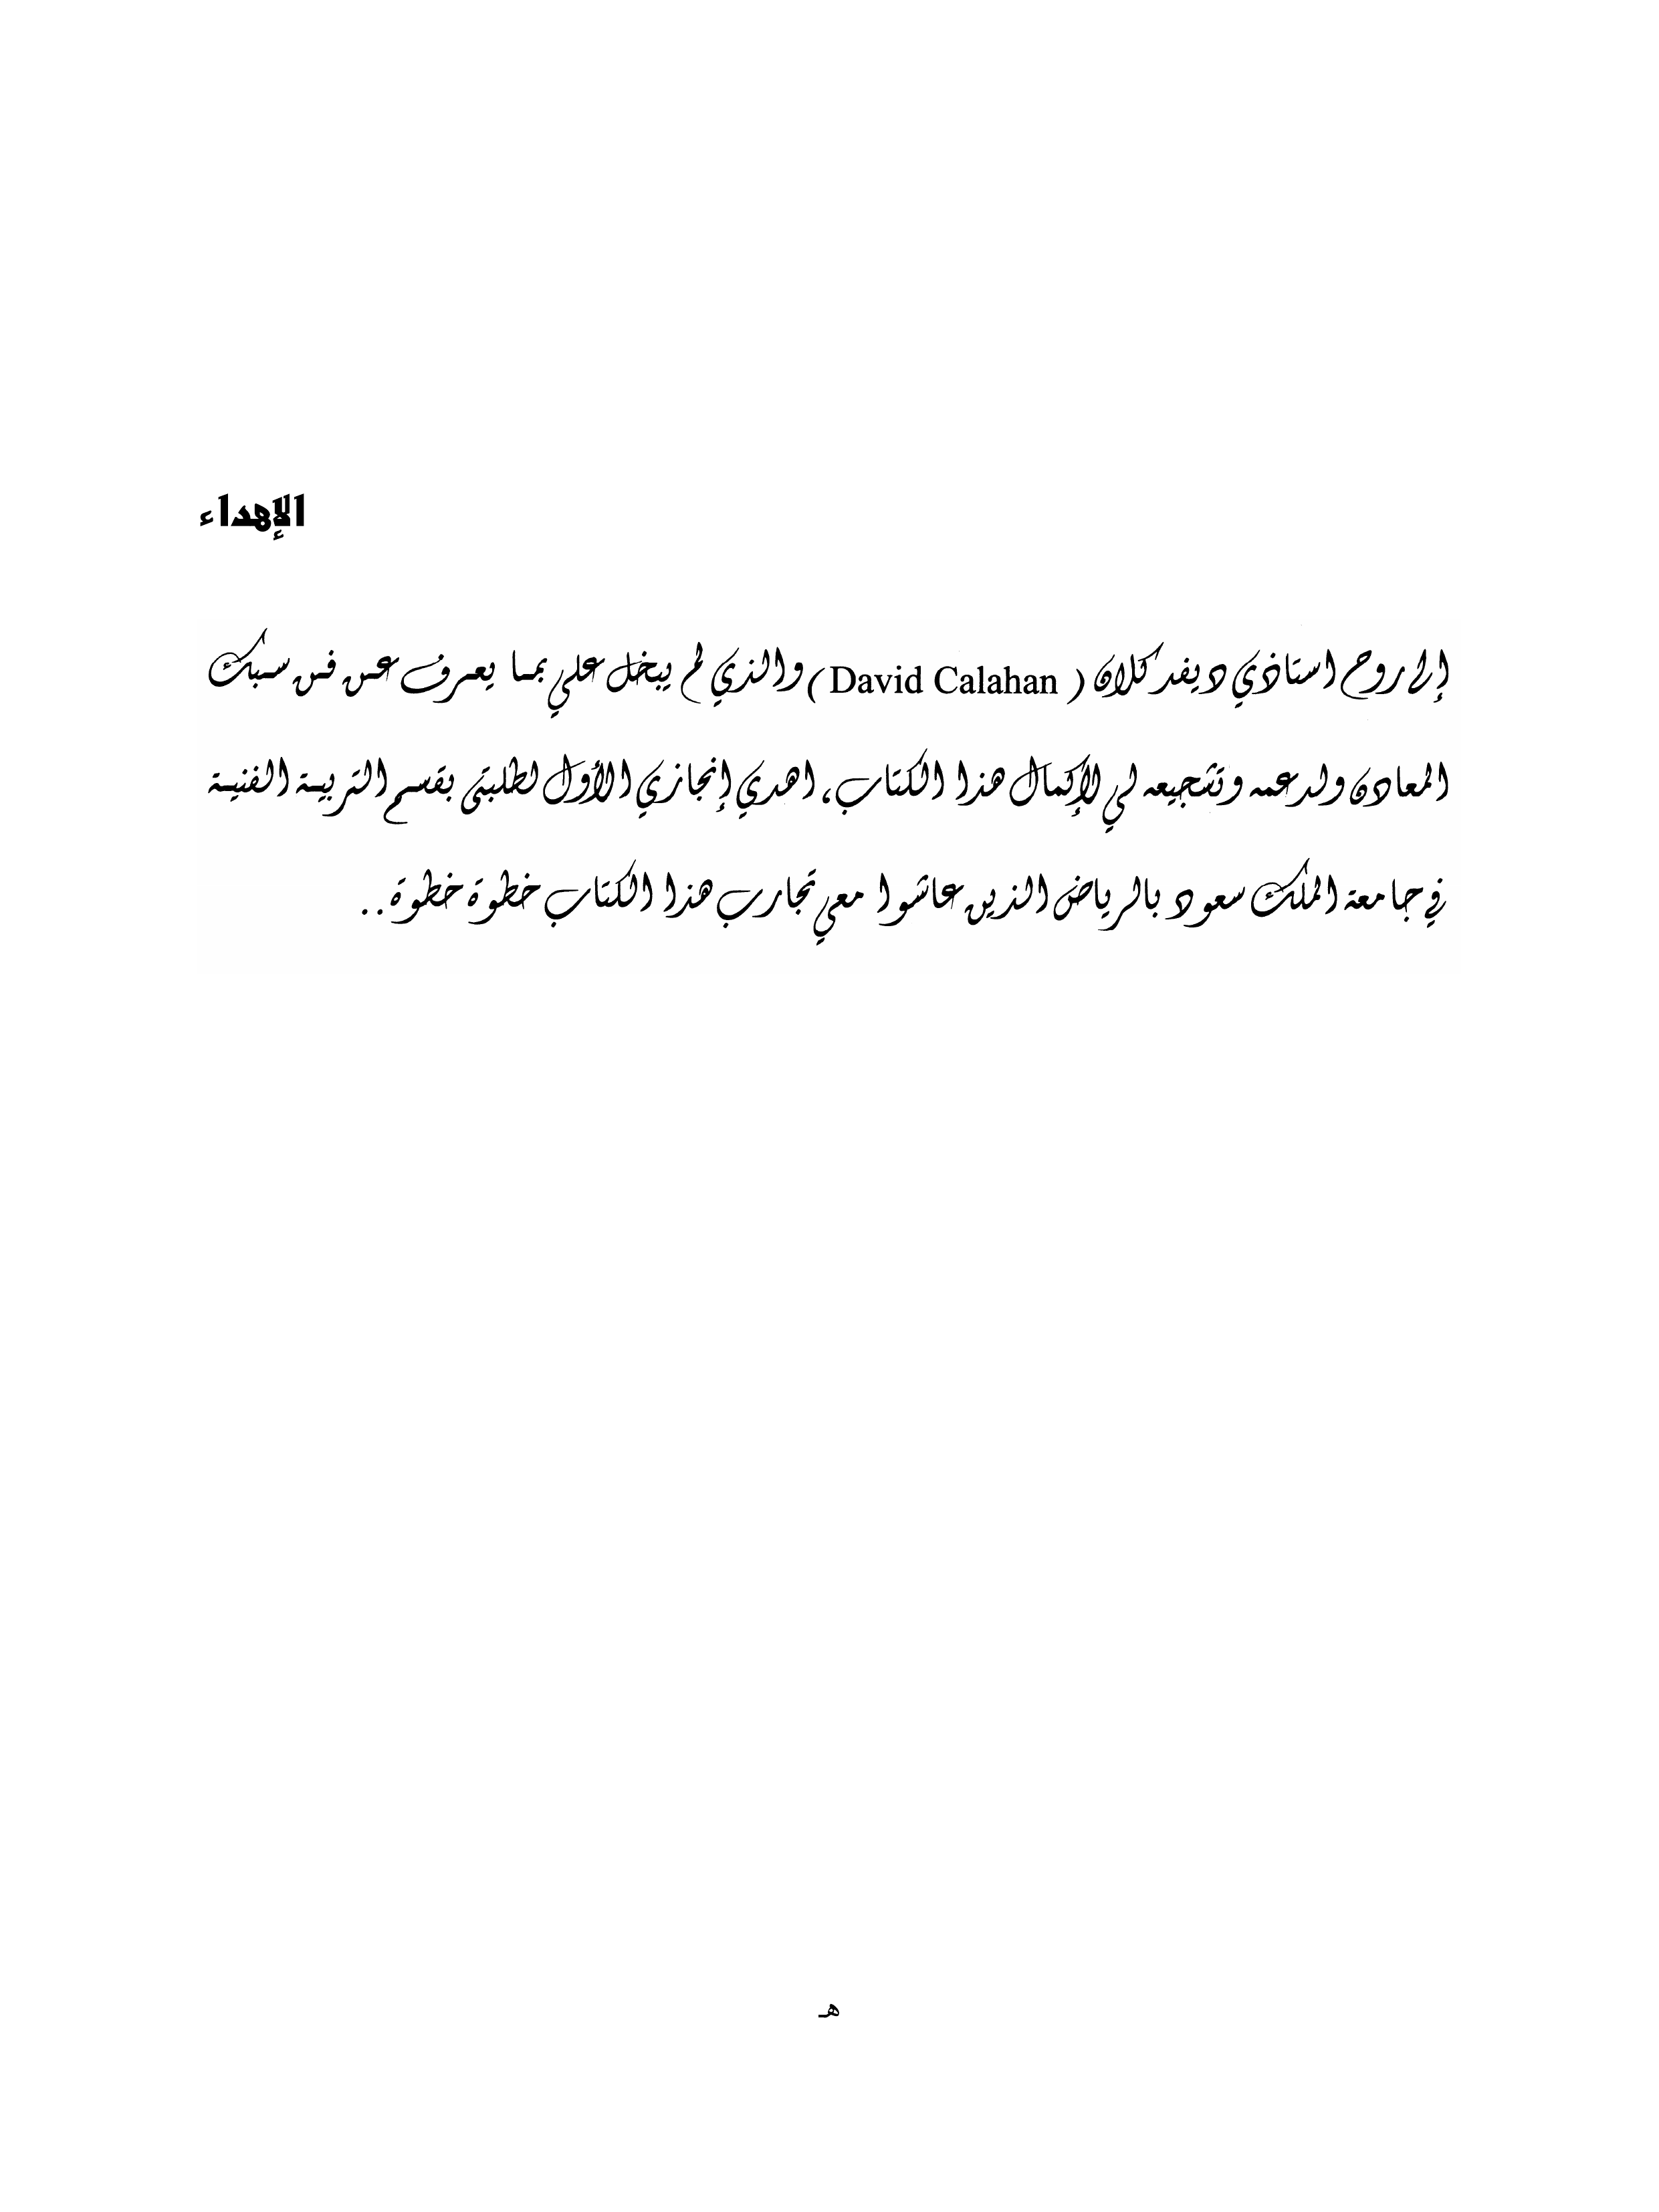 الإهداء
إلى روح استاذي ديفد كلان ( David Calahan ) والذي لم يبخل علي بما يعرف عن فن سبك
المعادن ولدعمه وتشجيعه لي لإكمال هذا الكتاب، اهدي إنجازي الأول لطلبتي بقسم التربية الفنية
في جامعة الملك سعود بالرياض الذين عاشوا معي تجارب هذا الكتاب خطوة خطوة..
هـ